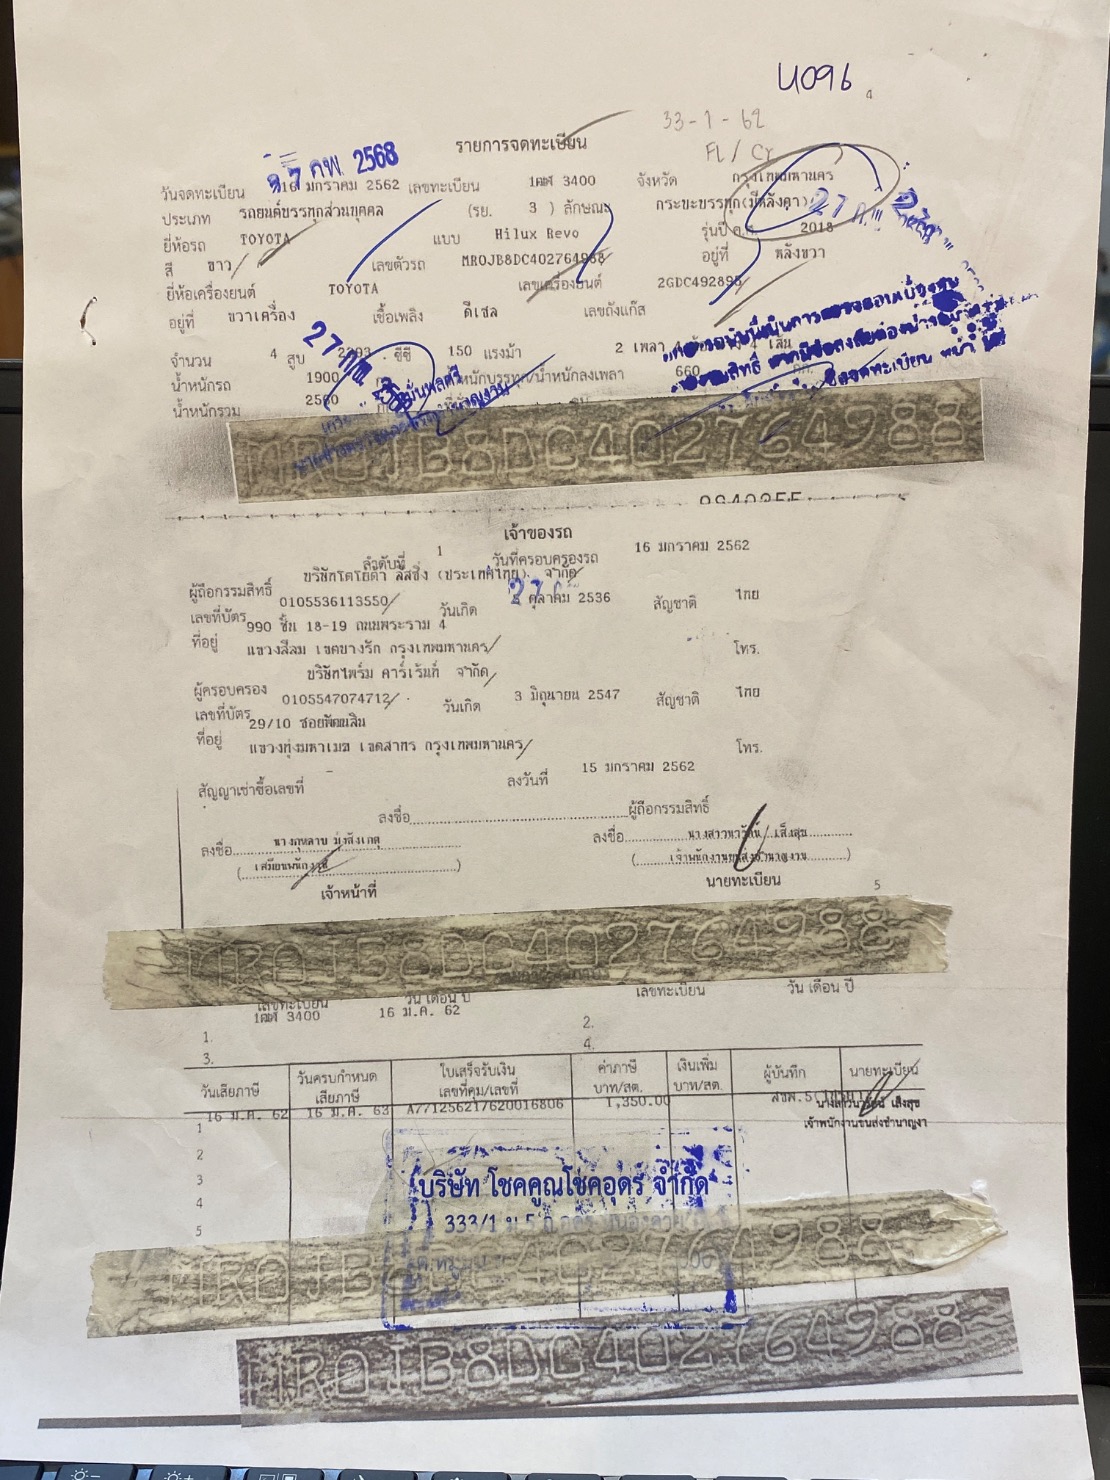 U096
33-1-62
รายการจดทะเบียน
FL/Cy
27 กพ. 2568
วันจดทะเบียน 16 มกราคม 2562 เลขทะเบียน 1ฒศ 3400 จังหวัด กรุงเทพมหานคร
ประเภท รถยนต์บรรทุกส่วนบุคคล (รย. 3 ) ลักษณะ กระบะบรรทุก(มีหลังคา)
ยี่ห้อรถ TOYOTA แบบ Hilux Revo รุ่นปี ค.ศ. 2018
สี ขาว เลขตัวรถ MR0JB8DC402764988 อยู่ที่ หลังขวา
ยี่ห้อเครื่องยนต์ TOYOTA เลขเครื่องยนต์ 2GDC492895
อยู่ที่ ขวาเครื่อง เชื้อเพลิง ดีเซล เลขถังแก๊ส
จำนวน 4 สูบ 2393 ซีซี 150 แรงม้า 2 เพลา 4 ล้อ 4 เส้น
น้ำหนักรถ 1900 น้ำหนักบรรทุก/น้ำหนักลงเพลา 660 กก.
น้ำหนักรวม 2560
MR0JB8DC402764988
เจ้าของรถ
ลำดับที่ 1 วันที่ครอบครองรถ 16 มกราคม 2562
ผู้ถือกรรมสิทธิ์ บริษัทโตโยต้า ลีสซิ่ง (ประเทศไทย) จำกัด
เลขที่บัตร 0105536113550 วันเกิด ตุลาคม 2536 สัญชาติ ไทย
ที่อยู่ 990 ชั้น 18-19 ถนนพระราม 4
แขวงสีลม เขตบางรัก กรุงเทพมหานคร โทร.
ผู้ครอบครอง บริษัทไพร์ม คาร์เร้นท์ จำกัด
เลขที่บัตร 0105547074712 วันเกิด 3 มิถุนายน 2547 สัญชาติ ไทย
ที่อยู่ 29/10 ซอยพัฒนสิน
แขวงทุ่งมหาเมฆ เขตสาทร กรุงเทพมหานคร โทร.
สัญญาเช่าซื้อเลขที่ - ลงวันที่ 15 มกราคม 2562
ลงชื่อ ผู้ถือกรรมสิทธิ์
ลงชื่อ ลงชื่อ
เจ้าหน้าที่ นายทะเบียน
5
MR0JB8DC402764988
เลขทะเบียน วัน เดือน ปี เลขทะเบียน วัน เดือน ปี
1. 1ฒศ 3400 16 ม.ค. 62 2.
3. 4.
วันเสียภาษี วันครบกำหนดเสียภาษี ใบเสร็จรับเงิน เลขที่คุม/เลขที่ ค่าภาษี บาท/สต. เงินเพิ่ม บาท/สต. ผู้บันทึก นายทะเบียน
1 16 ม.ค. 62 16 ม.ค. 63 A771256217620016806 1,350.00
เจ้าพนักงานขนส่งชำนาญงา
2
3
4
5
บริษัท โชคคูณโชคอุดร จำกัด
333/1 ม.5
MR0JB8DC402764988
MR0JB8DC402764988